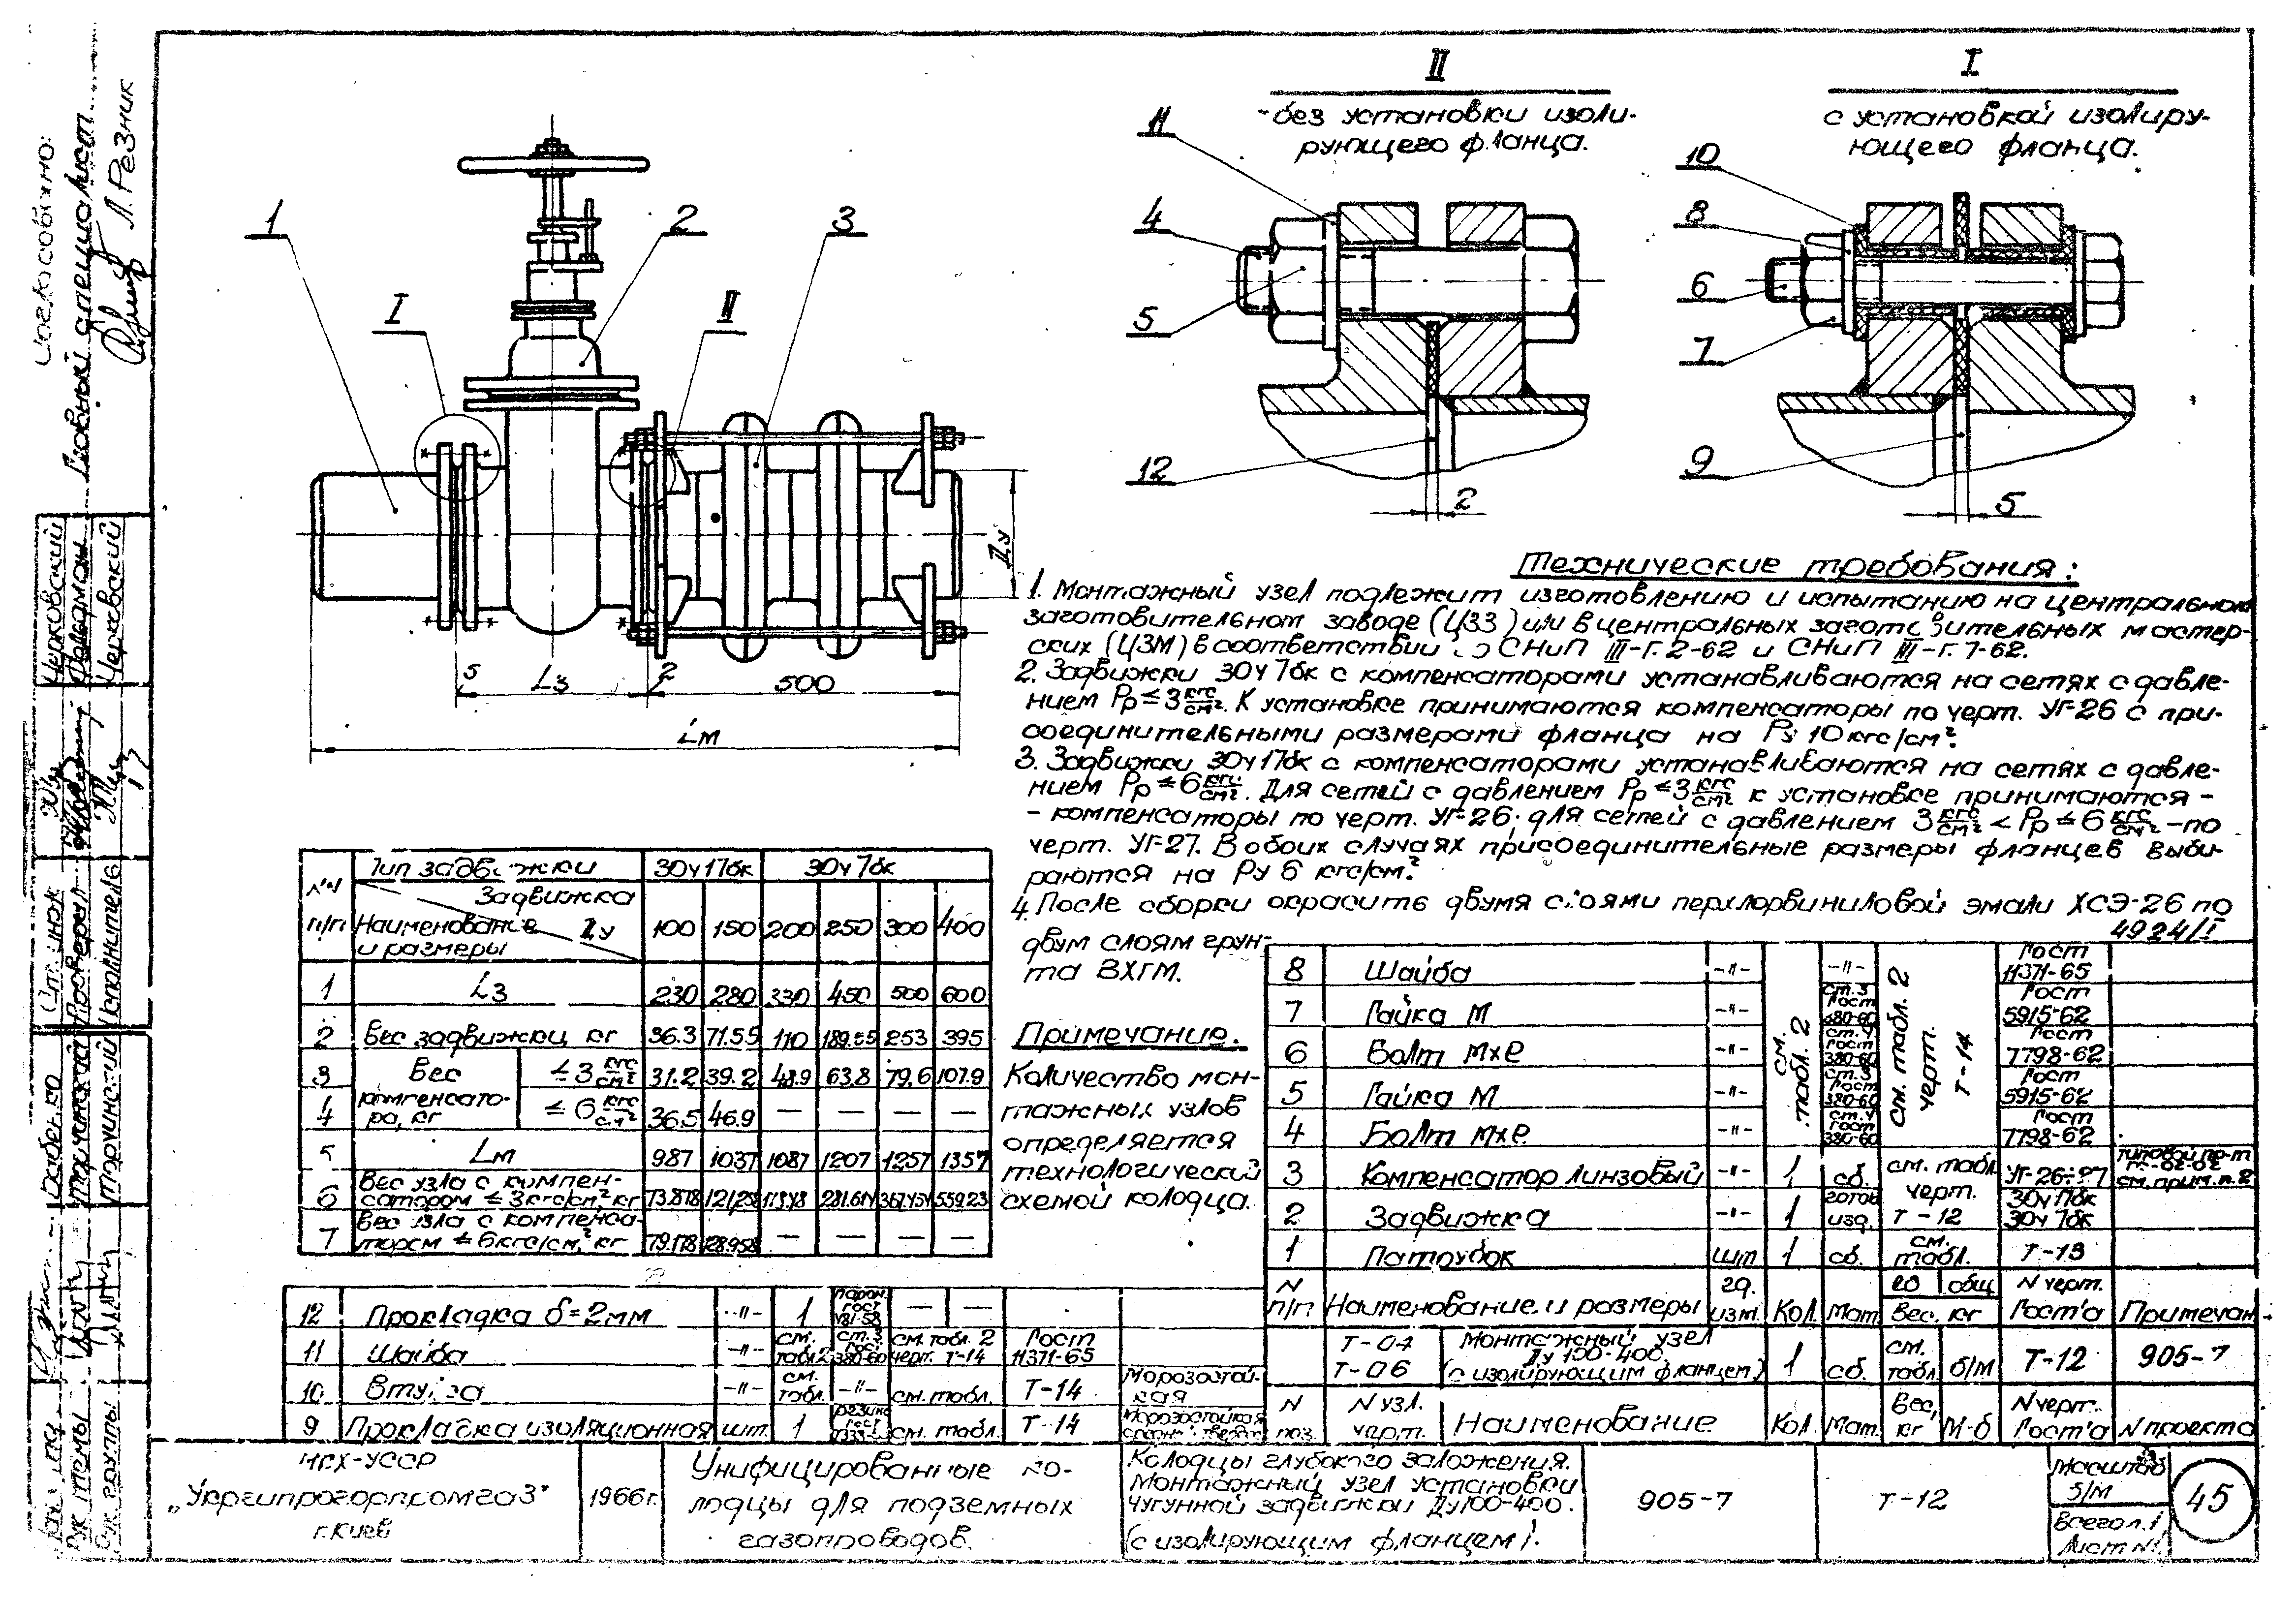 II
без установки изоли-
рующего фланца.
I
с установкой изолиру-
ющего фланца.
11
4
5
12
2
10
8
6
7
9
5
1
2
3
I
II
Ду
5
Lз
2
500
Lм
Технические требования:
1. Монтажный узел подлежит изготовлению и испытанию на центральном
заготовительном заводе (ЦЗЗ) или в центральных заготовительных мастер-
ских (ЦЗМ) в соответствии со СНиП III-Г. 2-62 и СНиП III-Г. 7-62.
2. Задвижки 30ч7бк с компенсаторами устанавливаются на сетях с давле-
нием Рр ≤ 3 кгс/см². К установке принимаются компенсаторы по черт. УГ-26 с при-
соединительными размерами фланца на Ру 10 кгс/см².
3. Задвижки 30ч17бк с компенсаторами устанавливаются на сетях с давле-
нием Рр ≤ 6 кгс/см². Для сетей с давлением Рр ≤ 3 кгс/см² к установке принимаются -
- компенсаторы по черт. УГ-26; для сетей с давлением 3 кгс/см² < Рр ≤ 6 кгс/см² - по
черт. УГ-27. В обоих случаях присоединительные размеры фланцев выби-
раются на Ру 6 кгс/см².
4. После сборки окрасить двумя слоями перхлорвиниловой эмали ХСЭ-26 по
4924/I
двум слоям грун-
та ВХГМ.
Примечание.
Количество мон-
тажных узлов
определяется
технологической
схемой колодца.
№№ п/п Тип задвижки 30ч17бк 30ч7бк
Задвижка Ду Наименование и размеры 100 150 200 250 300 400
1 Lз 230 280 330 450 500 600
2 Вес задвижки кг 36.3 71.55 110 189.55 253 395
3 Вес компенсато-ра, кг ≤ 3 кгс/см² 31.2 39.2 48.9 63.8 79.6 107.9
4 ≤ 6 кгс/см² 36.5 46.9 — — — —
5 Lм 987 1037 1087 1207 1257 1357
6 Вес узла с компен-сатором ≤ 3 кгс/см², кг 73.878 559.23
7 Вес узла с компенса-тором ≤ 6 кгс/см², кг 79.178 128.958 — — — —
8 Шайба -"- см. табл. 2 -"- см. табл. 2 черт. Т-14 Гост 11371-65
7 Гайка М -"- ст. 3 Гост 380-60 Гост 5915-62
6 Болт М×ℓ -"- ст. 4 Гост 380-60 Гост 7798-62
5 Гайка М -"- ст. 3 Гост 380-60 Гост 5915-62
4 Болт М×ℓ -"- ст. 4 Гост 380-60 Гост 7798-62
3 Компенсатор линзовый -"- 1 сб. см. табл. черт. Т-12 УГ-26÷27 типовой пр-т см. прим. п. 2
2 Задвижка -"- 1 готов. изд. 30ч17бк 30ч7бк
1 Патрубок шт 1 сб. см. табл. Т-13
N п/п. Наименование и размеры ед. изм. Кол. Мат. ед общ Вес, кг N черт. Гост'а Примечан.
12 Прокладка δ=2мм -"- 1 — —
11 Шайба -"- см. табл 2 ст. 3 Гост 380-60 см. табл. 2 черт. Т-14 Гост 11371-65
10 Втулка -"- см. табл. -"- см. табл. Т-14 Морозостой-кая
9 Прокладка изоляционная шт. 1 см. табл. Т-14 Морозостойкая
Т-04 Т-06 Монтажный узел Ду 100-400 (с изолирующим фланцем) 1 сб. см. табл б/м Т-12 905-7
N поз. N узл. черт. Наименование Кол. Мат. Вес, кг М-б N черт. Гост'а N проекта
МКХ-УССР
„Укргипрогорпромгаз"
г. Киев
1966г.
Унифицированные ко-
лодцы для подземных
газопроводов.
Колодцы глубокого заложения.
Монтажный узел установки
чугунной задвижки Ду100-400.
(с изолирующим фланцем).
905-7
Т-12
Масштаб
б/м
Всего л. 1
Лист №1.
45
Согласовано:
Главный специалист
Л. Резник
Черковский
Фельдман
Черковский
Ст. инж
Проверил
Исполнитель
Рук темы
Рук группы